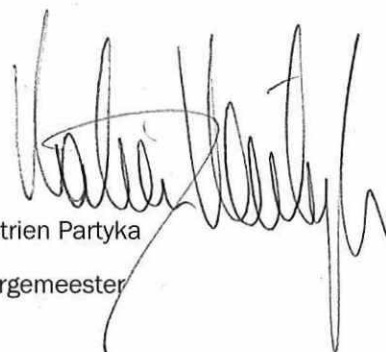 trien Partyka
rgemeester